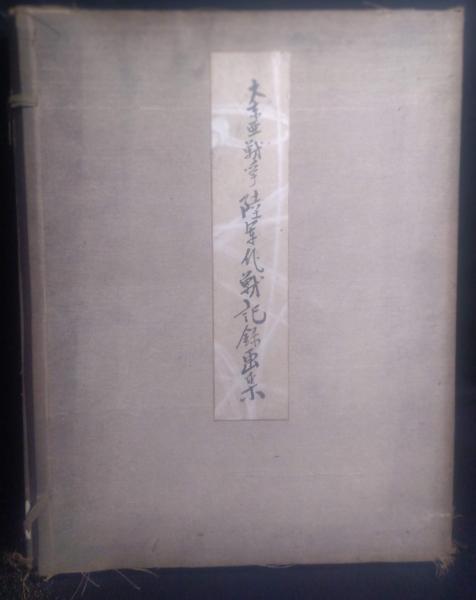 大東亜戦争陸軍作戦記録画集